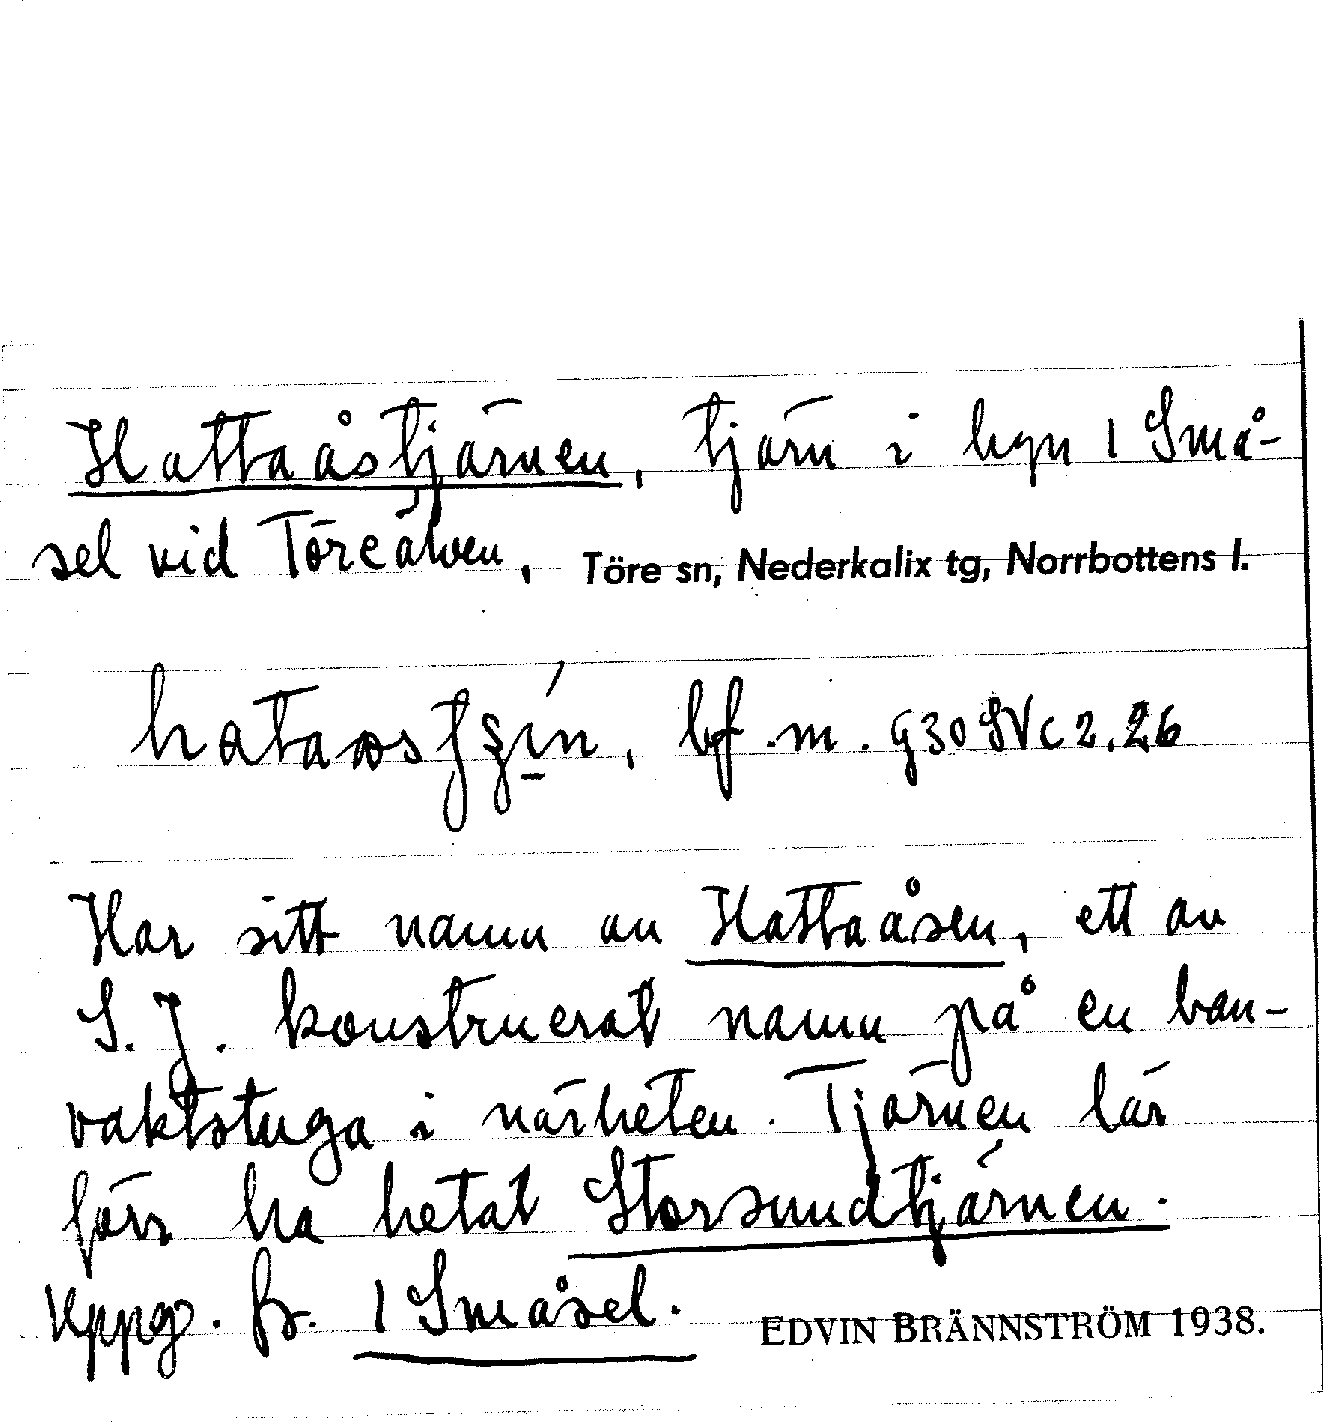 Hattaåstjärnen, tjärn i byn 1 Små-
sel vid Töreälven, Töre sn, Nederkalix tg, Norrbottens l.
bf. m. G30SVc2.26
Har sitt namn av Hattaåsen, ett av
S. J. konstruerat namn på en ban-
vaktstuga i närheten. Tjärnen lär
förr ha hetat Storsundtjärnen.
Uppg. fr. 1 Småsel. EDVIN BRÄNNSTRÖM 1938.